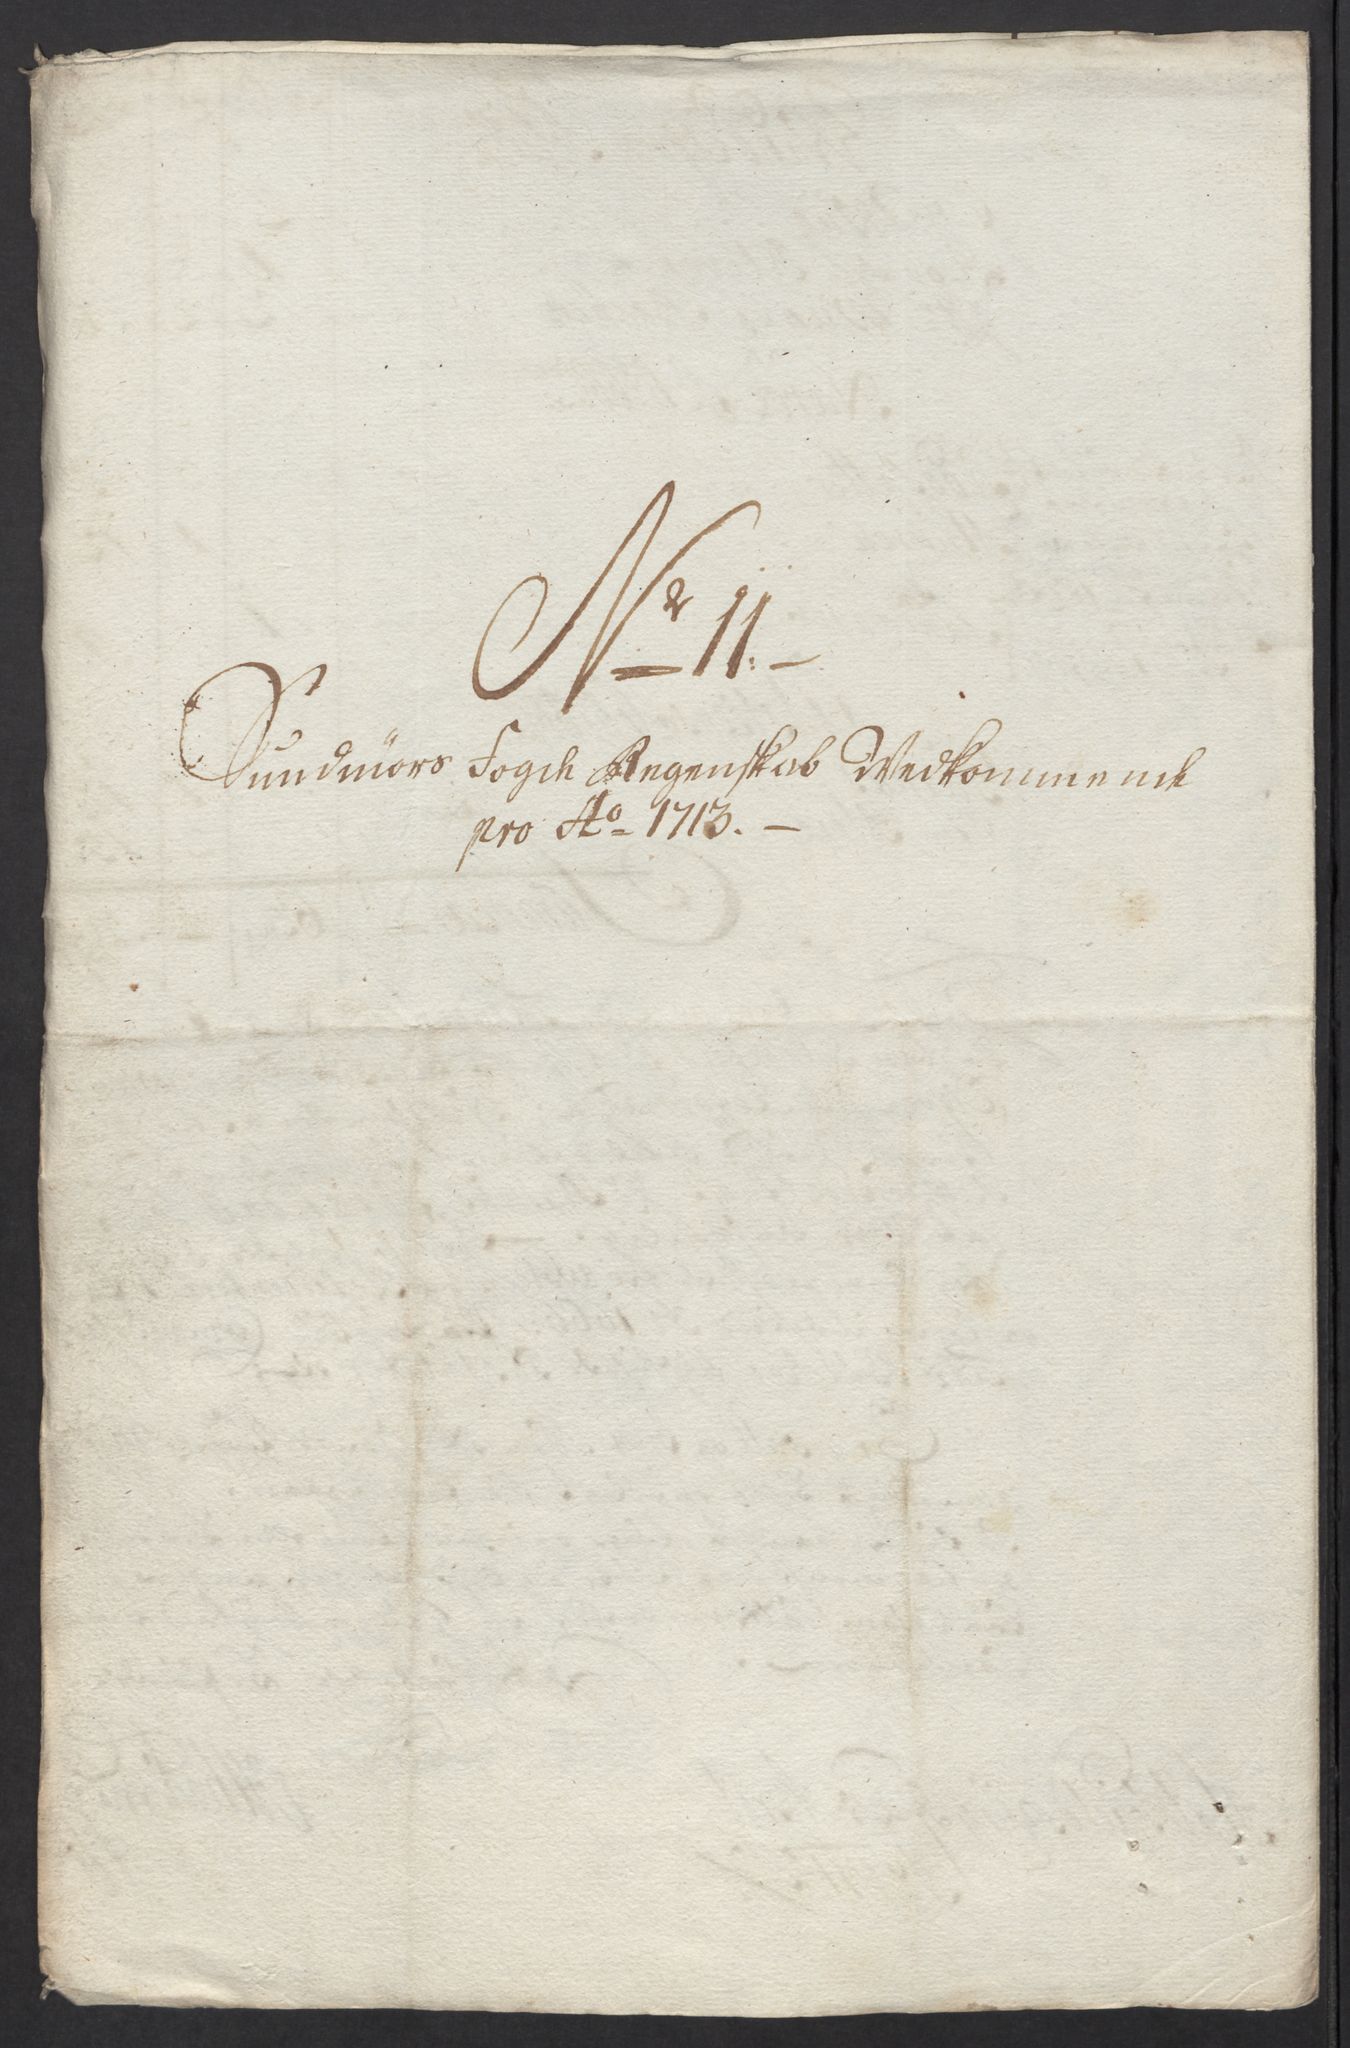 Nr 11. –
Sundmörs Fogde Regenskab Vedkommende
pro Ao 1713. –